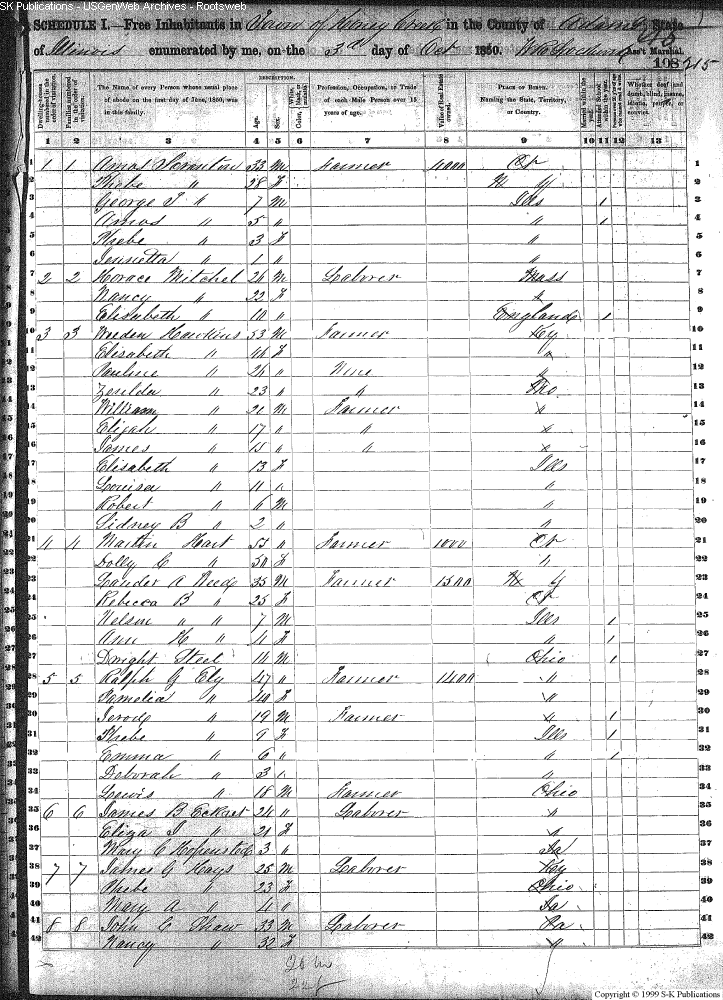 SK Publications - USGenWeb Archives - Rootsweb
SCHEDULE I.—Free Inhabitants in Town of Honey Creek in the County of Adams State
of Illinois enumerated by me, on the 3d day of Oct 1850. Ass't Marshal.
108 215
Dwelling-houses numbered in the order of visitation.
Families numbered in the order of visitation.
The Name of every Person whose usual place of abode on the first day of June, 1850, was in this family.
DESCRIPTION.
Age.
Sex.
White, black, or mulatto.
Color,
Profession, Occupation, or Trade of each Male Person over 15 years of age.
Value of Real Estate owned.
PLACE OF BIRTH. Naming the State, Territory, or Country.
Married within the year.
Attended School within the year.
Whether deaf and dumb, blind, insane, idiotic, pauper, or convict.
1 2 3 4 5 6 7 8 9 10 11 12 13
1 1 1 Amos Scranton 33 M Farmer 4000 Ct 1
2 Phebe " 28 F N Y 2
3 George T " 7 M Ills 1 3
4 Amos " 5 " " 1 4
5 Phebe " 3 F " 5
6 Jennetta " 1 " " 6
7 2 2 Horace Mitchel 26 M Laborer Mass 7
8 Nancy " 22 F " 8
9 Elisabeth " 10 " England 1 9
10 3 3 Weeden Hawkins 53 M Farmer Key 10
11 Elisabeth " 46 F " 11
12 Pauline " 26 " None " 12
13 Zerilda " 23 " " Mo 13
14 William " 21 M Farmer " 14
15 Elijah " 17 " " " 15
16 James " 15 " " " 16
17 Elisabeth " 13 F Ills 17
18 Louisa " 11 " " 18
19 Robert " 6 M " 19
20 Sidney B " 2 " " 20
21 4 4 Martin Hart 53 " Farmer 1000 Ct 21
22 Dolly C " 50 F " 22
23 Leander A Reed 35 M Farmer 1500 N Y 23
24 Rebecca B " 25 F Ct 24
25 Nelson " " 7 M Ills 1 25
26 Ann H " 4 F " 1 26
27 Dwight Steel 14 M Ohio 1 27
28 5 5 Ralph G Ely 47 " Farmer 1400 " 28
29 Pamelia " 40 F " 29
30 Jerode " 19 M Farmer " 1 30
31 Phebe " 9 F Ills 1 31
32 Emma " 6 " " 1 32
33 Deborah " 3 " " 33
34 Lewis " 18 M Farmer Ohio 34
35 6 6 James B Eckart 24 " Laborer " 35
36 Eliza J " 21 F " 36
37 Mary C 3 " Ia 37
38 7 7 James G Hays 25 M Laborer Key 38
39 Phebe " 23 F Ohio 39
40 Mary A " 4 " Ia 40
41 8 8 John C Thaw 33 M Laborer Pa 41
42 Nancy " 32 F " 42
20 m
22 f
Copyright © 1999 S-K Publications